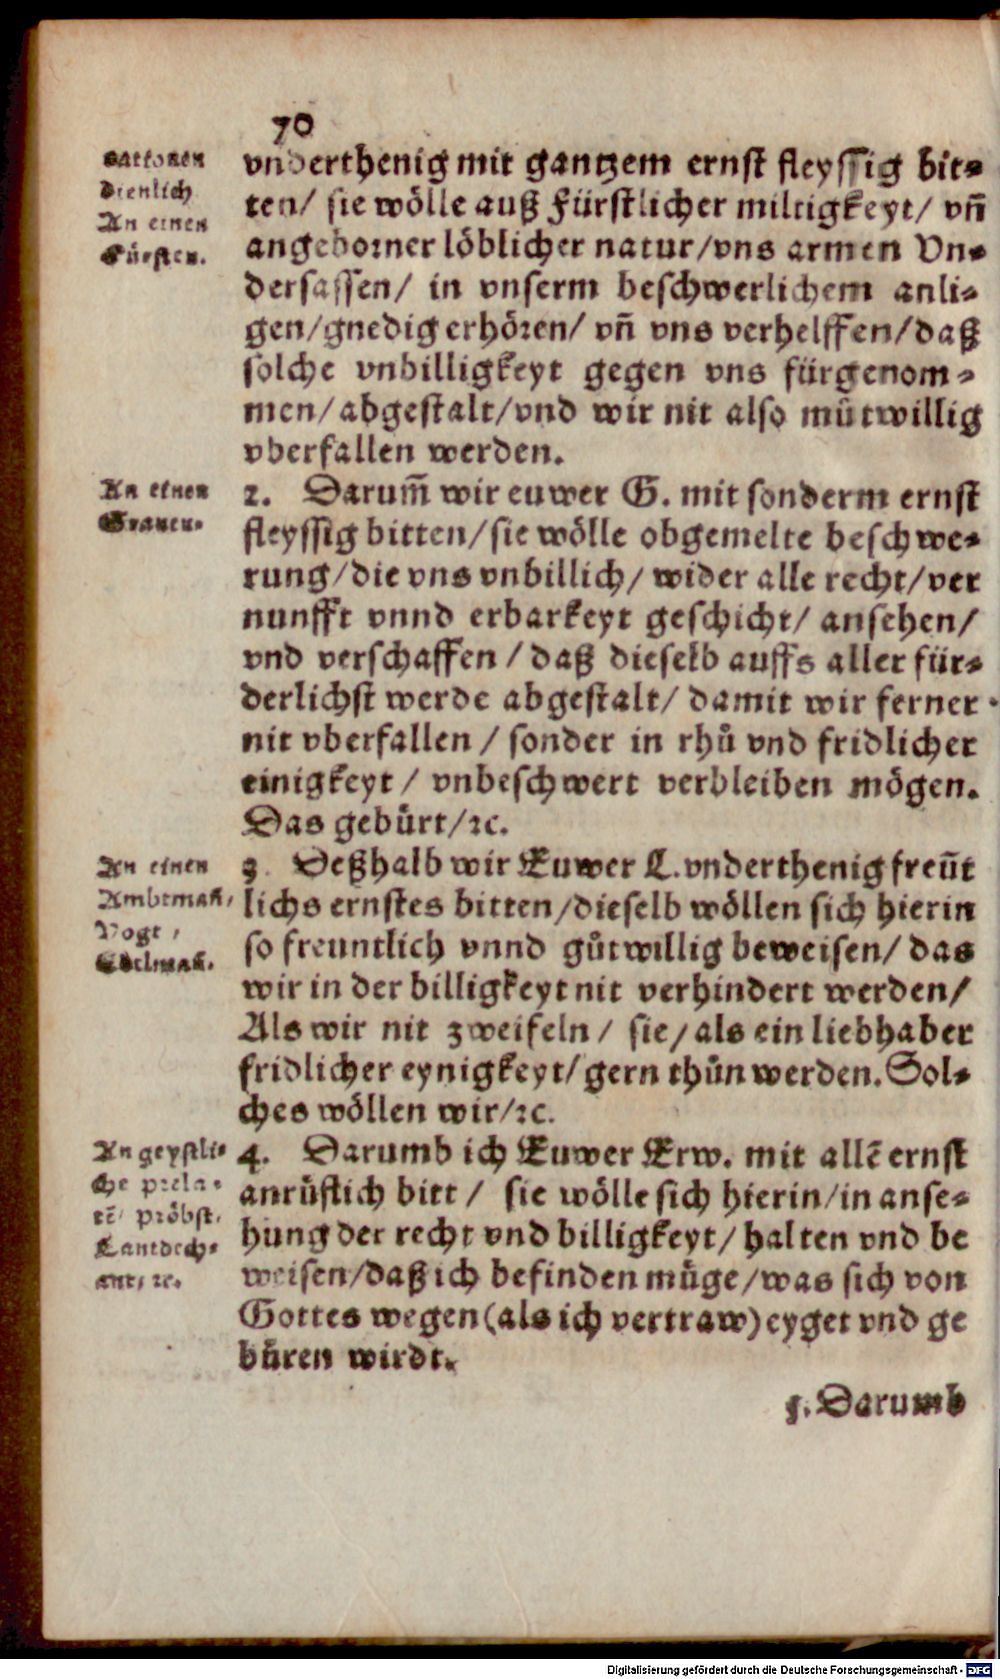 70
cationen
dienlich
An einen
Fürsten.
vnderthenig mit gantzem ernst fleyssig bit⸗
ten/ sie wölle auß Fürstlicher miltigkeyt/ vñ
angeborner löblicher natur/vns armen Vn⸗
dersassen/ in vnserm beschwerlichem anli⸗
gen/gnedig erhören/ vñ vns verhelffen/daß
solche vnbilligkeyt gegen vns fürgenom⸗
men/abgestalt/vnd wir nit also můtwillig
vberfallen werden.
An einen
Grauen.
2. Darum̃ wir euwer G. mit sonderm ernst
fleyssig bitten/sie wölle obgemelte beschwe⸗
rung/die vns vnbillich/ wider alle recht/ver
nunfft vnnd erbarkeyt geschicht/ ansehen/
vnd verschaffen/ daß dieselb auffs aller für⸗
derlichst werde abgestalt/ damit wir ferner
nit vberfallen/ sonder in rhů vnd fridlicher
einigkeyt/ vnbeschwert verbleiben mögen.
Das gebürt/ꝛc.
An einen
Ambtmañ/
Vogt/
Edelmañ.
3. Deßhalb wir Euwer L. vnderthenig freũt
lichs ernstes bitten/dieselb wöllen sich hierin
so freuntlich vnnd gůtwillig beweisen/ das
wir in der billigkeyt nit verhindert werden/
Als wir nit zweifeln/ sie/als ein liebhaber
fridlicher eynigkeyt/gern thůn werden. Sol⸗
ches wöllen wir/ꝛc.
An geystli⸗
che prela⸗
tẽ/ pröbst/
Lantdech⸗
ant/ ꝛc.
4. Darumb ich Euwer Erw. mit allẽ ernst
anrüffich bitt/ sie wölle sich hierin/in anse⸗
hung der recht vnd billigkeyt/ halten vnd be
weisen/daß ich befinden müge/was sich von
Gottes wegen (als ich vertraw) eyget vnd ge
büren wirdt.
5. Darumb
Digitalisierung gefördert durch die Deutsche Forschungsgemeinschaft - DFG